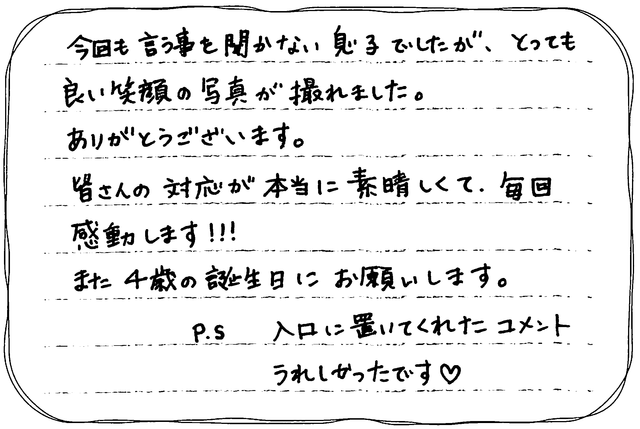 今回も言う事を聞かない息子でしたが、とっても
良い笑顔の写真が撮れました。
ありがとうございます。
皆さんの対応が本当に素晴しくて、毎回
感動します!!!
また4歳の誕生日にお願いします。
P.S 入口に置いてくれたコメント
うれしかったです♡